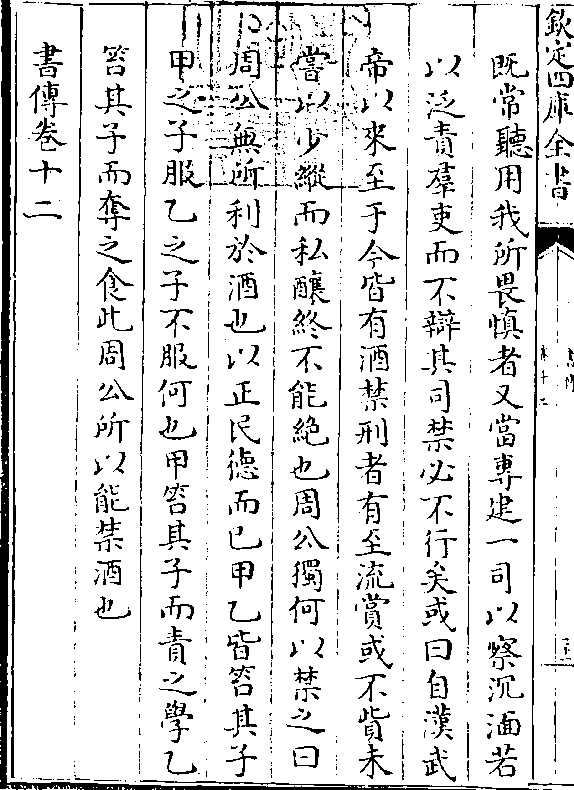 欽定四庫全書
既常聽用我所畏慎者又當專建一司以察沉湎若
以泛責羣吏而不辯其司禁必不行矣或曰自漢武
帝以來至于今皆有酒禁刑者有至流賞或不貲未
嘗以少縱而私釀終不能絶也周公獨何以禁之曰
周公無所利於酒也以正民德而已甲乙皆笞其子
甲之子服乙之子不服何也甲笞其子而責之學乙
笞其子而奪之食此周公所以能禁酒也
書傳卷十二